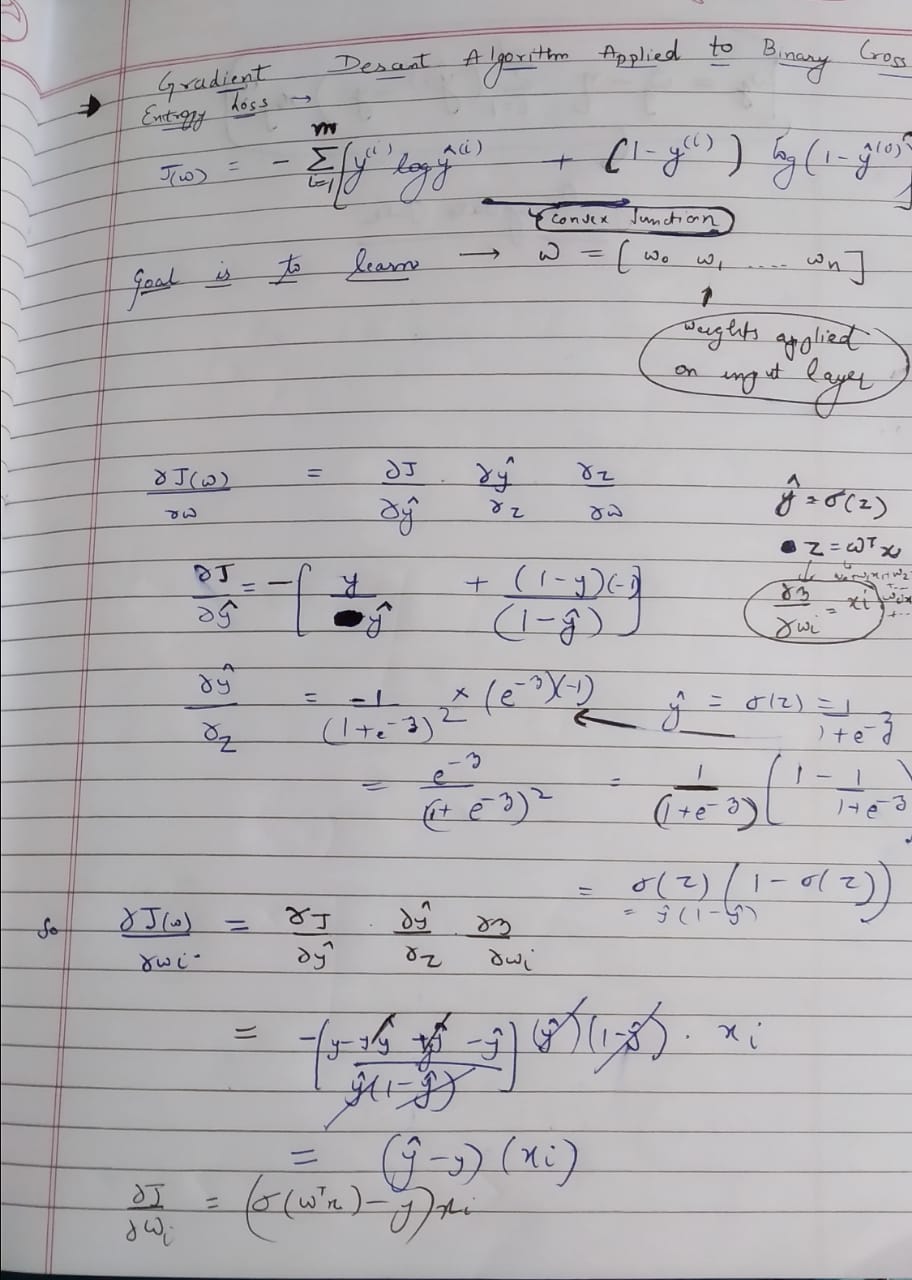 Gradient Desant Algorithm Applied to Binary Cross
Entropy Loss →
J(ω) = - Σ_{i=1}^{m} [y^{(i)} log ŷ^{(i)} + (1 - y^{(i)}) log(1 - ŷ^{(i)})]
convex function
Goal is to learn → ω = [ω₀ ω₁ .... ωn]
weights applied
on input layer
∂J(ω)/∂ω = ∂J/∂ŷ · ∂ŷ/∂z ∂z/∂ω
ŷ = σ(z)
z = ωᵀx
∂z/∂ωi = xi
∂J/∂ŷ = -[y/ŷ + (1-y)(-1)/(1-ŷ)]
∂ŷ/∂z = -1/(1+e^{-z})² × (e^{-z})(-1) ← ŷ = σ(z) = 1/(1+e^{-z})
= e^{-z}/(1+e^{-z})² = 1/(1+e^{-z}) (1 - 1/(1+e^{-z}))
= σ(z)(1-σ(z))
= ŷ(1-ŷ)
So ∂J(ω)/∂ωi = ∂J/∂ŷ · ∂ŷ/∂z · ∂z/∂ωi
= -[(y - yŷ + yŷ - ŷ)/(ŷ(1-ŷ))] (ŷ)(1-ŷ) · xi
= (ŷ-y)(xi)
∂J/∂ωi = (σ(ωᵀx) - y)xi